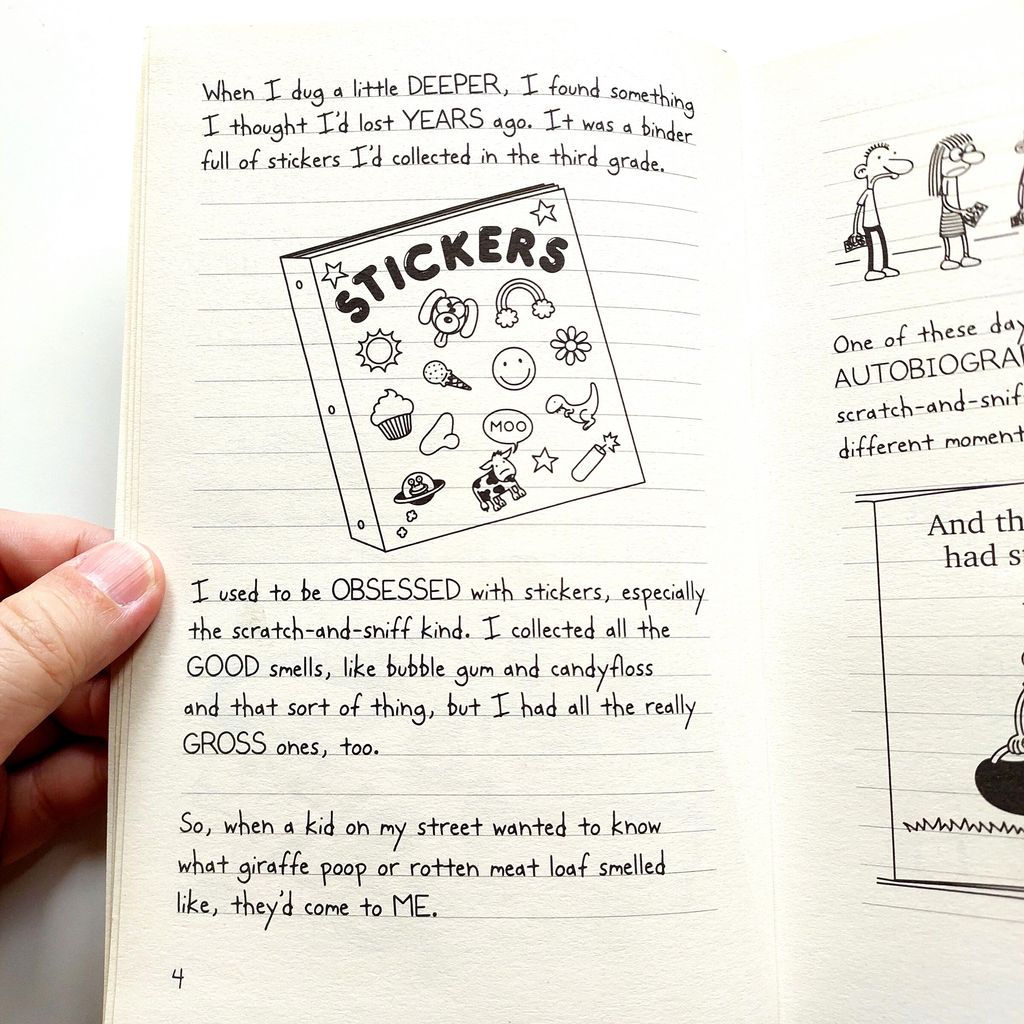 When I dug a little DEEPER, I found something
I thought I'd lost YEARS ago. It was a binder
full of stickers I'd collected in the third grade.
STICKERS
MOO
I used to be OBSESSED with stickers, especially
the scratch-and-sniff kind. I collected all the
GOOD smells, like bubble gum and candyfloss
and that sort of thing, but I had all the really
GROSS ones, too.
So, when a kid on my street wanted to know
what giraffe poop or rotten meat loaf smelled
like, they'd come to ME.
4
One of these
scratch-and-
different
And
had